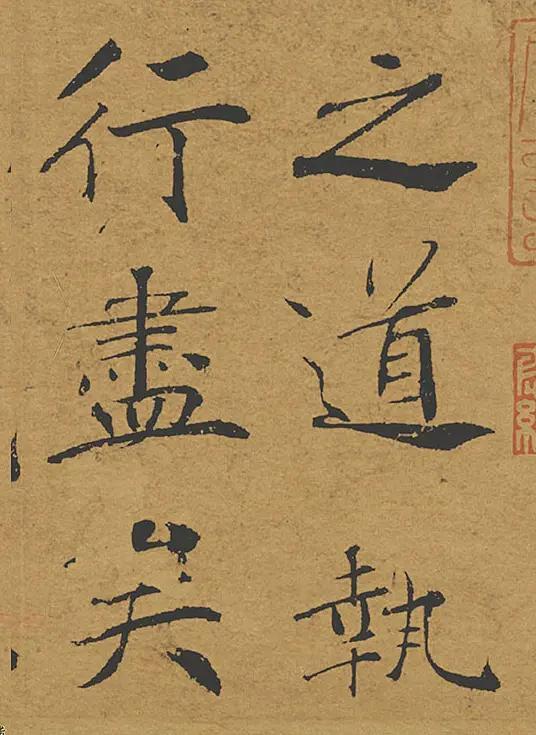 之道執
行盡矣